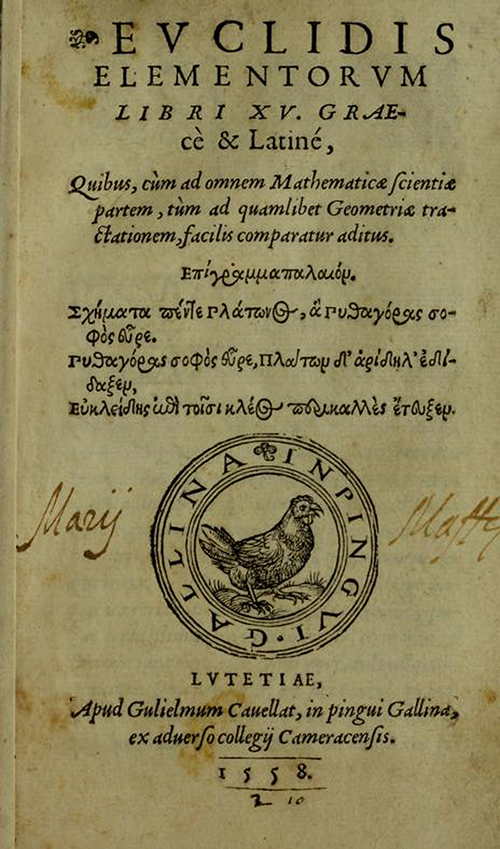 EVCLIDIS
ELEMENTORVM
LIBRI XV. GRAE-
cè & Latiné,
Quibus, cùm ad omnem Mathematicæ scientiæ
partem, tùm ad quamlibet Geometriæ tra-
ctationem, facilis comparatur aditus.
Επίγραμμα παλαιόν.
Σχήματα πέντε Πλάτωνος, ἃ Πυθαγόρας σο-
φὸς εὗρε.
Πυθαγόρας σοφὸς εὗρε, Πλάτων δ' ἀρίδηλ' ἐδί-
δαξεν,
Εὐκλείδης ἐπὶ τοῖσι κλέος περικαλλὲς ἔτευξεν.
IN PINGVI GALLINA
Marij
LVTETIAE,
Apud Gulielmum Cauellat, in pingui Gallina,
ex aduerso collegij Cameracensis.
1558.
2 10